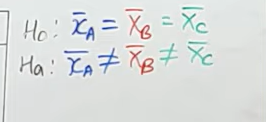 H₀: x̄_A = x̄_B = x̄_C
Ha: x̄_A ≠ x̄_B ≠ x̄_C